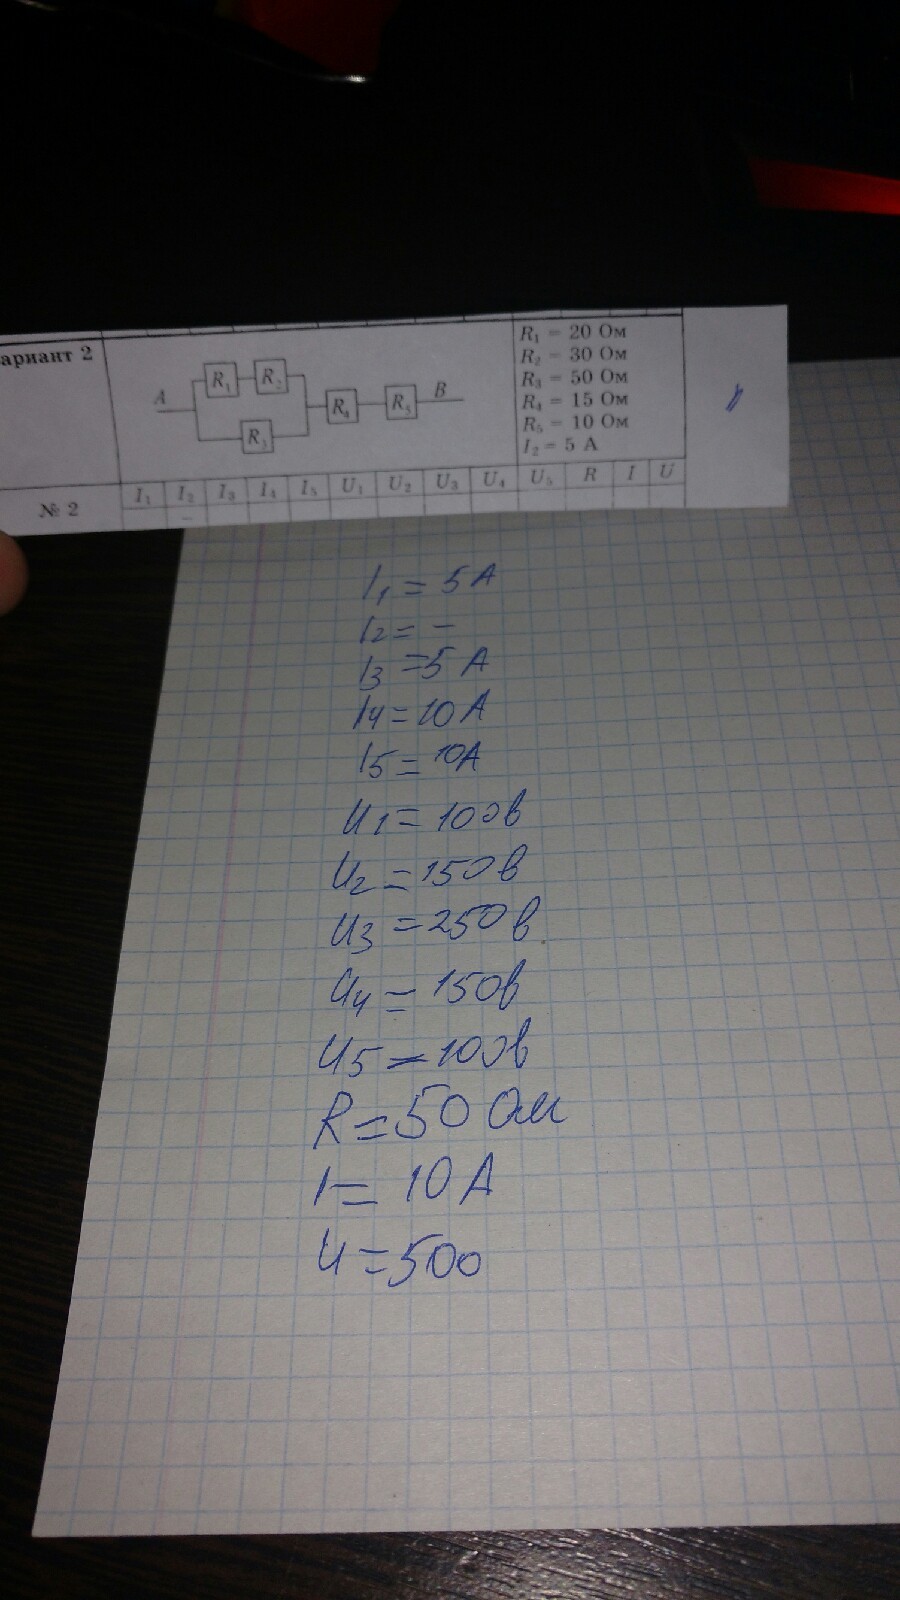 ариант 2
A R₁ R₂ R₃ R₄ R₅ B
R₁ = 20 Ом
R₂ = 30 Ом
R₃ = 50 Ом
R₄ = 15 Ом
R₅ = 10 Ом
I₂ = 5 А
№ 2 I₁ I₂ I₃ I₄ I₅ U₁ U₂ U₃ U₄ U₅ R I U
–
I₁ = 5 А
I₂ = –
I₃ = 5 А
I₄ = 10 А
I₅ = 10А
U₁ = 100в
U₂ = 150в
U₃ = 250в
U₄ = 150в
U₅ = 100в
R = 50 Ом
I = 10 А
U = 500